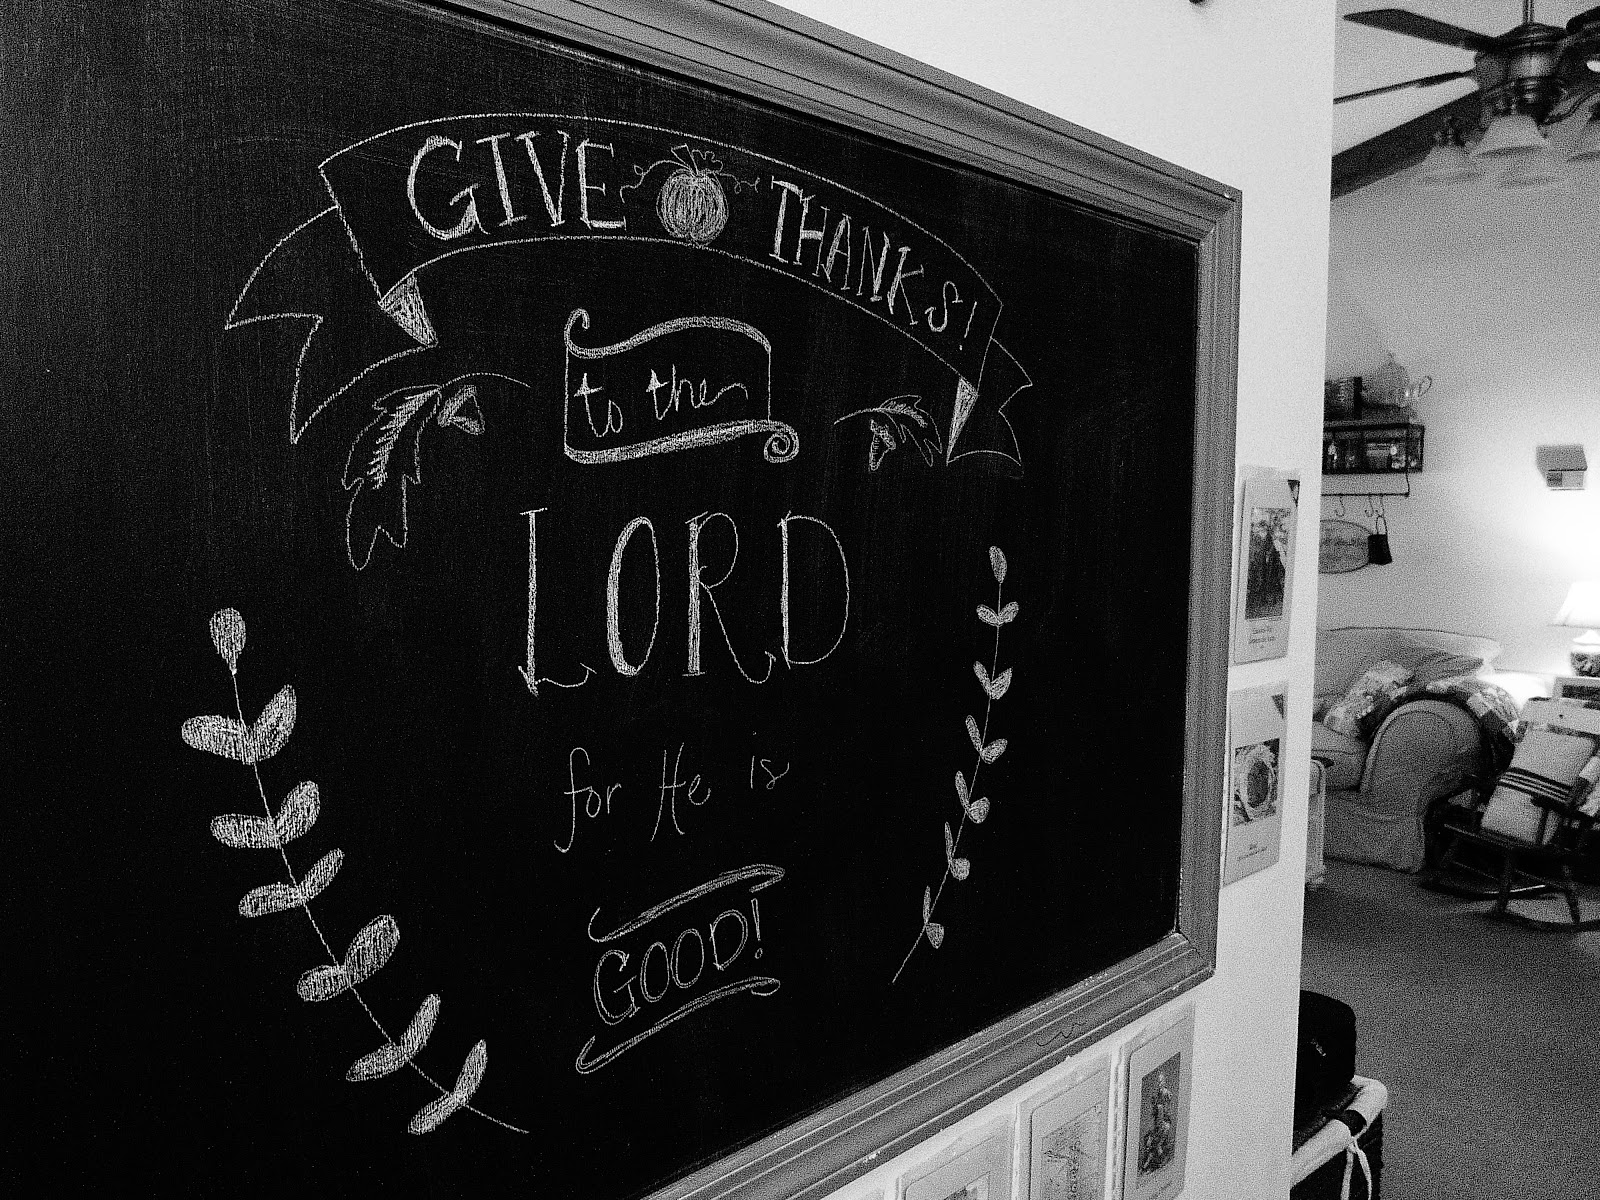 GIVE THANKS!
to the
LORD
for He is
GOOD!